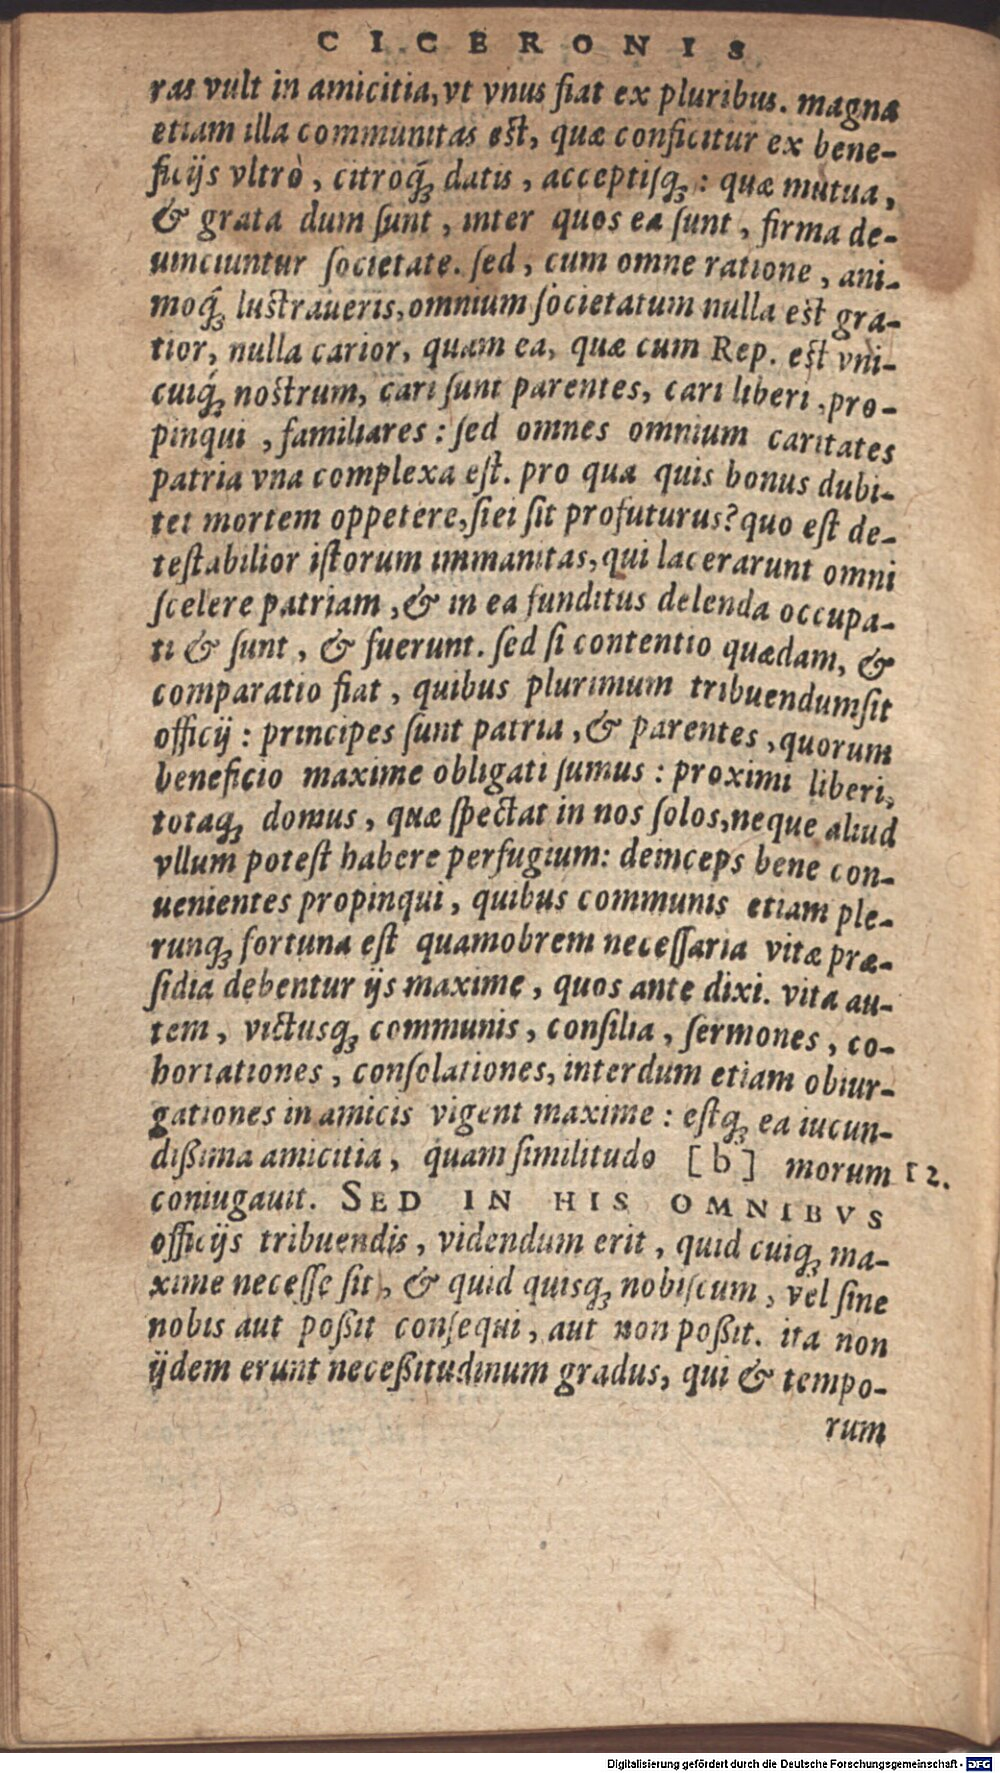 CICERONIS
ras vult in amicitia, vt vnus fiat ex pluribus. magna
etiam illa communitas est, quæ conficitur ex bene-
ficijs vltrò, citroq́; datis, acceptisq́;: quæ mutua,
& grata dum sunt, inter quos ea sunt, firma de-
uinciuntur societate. sed, cum omne ratione, ani-
moq́; lustraueris, omnium societatum nulla est gra-
tior, nulla carior, quam ea, quæ cum Rep. est vni-
cuiq́; nostrum, cari sunt parentes, cari liberi, pro-
pinqui, familiares: sed omnes omnium caritates
patria vna complexa est. pro qua quis bonus dubi-
tet mortem oppetere, si ei sit profuturus? quo est de-
testabilior istorum immanitas, qui lacerarunt omni
scelere patriam, & in ea funditus delenda occupa-
ti & sunt, & fuerunt. sed si contentio quædam, &
comparatio fiat, quibus plurimum tribuendum sit
officij: principes sunt patria, & parentes, quorum
beneficio maxime obligati sumus: proximi liberi,
totaq; domus, quæ spectat in nos solos, neque aliud
vllum potest habere perfugium: deinceps bene con-
uenientes propinqui, quibus communis etiam ple-
runq; fortuna est quamobrem necessaria vitæ præ-
sidia debentur ijs maxime, quos ante dixi. vita au-
tem, victusq; communis, consilia, sermones, co-
hortationes, consolationes, interdum etiam obiur-
gationes in amicis vigent maxime: estq; ea iucun-
dißima amicitia, quam similitudo [b] morum 12.
coniugauit. SED IN HIS OMNIBVS
officijs tribuendis, videndum erit, quid cuiq; ma-
xime necesse sit, & quid quisq; nobiscum, vel sine
nobis aut poßit consequi, aut non poßit. ita non
ijdem erunt neceßitudinum gradus, qui & tempo-
rum
Digitalisierung gefördert durch die Deutsche Forschungsgemeinschaft - DFG